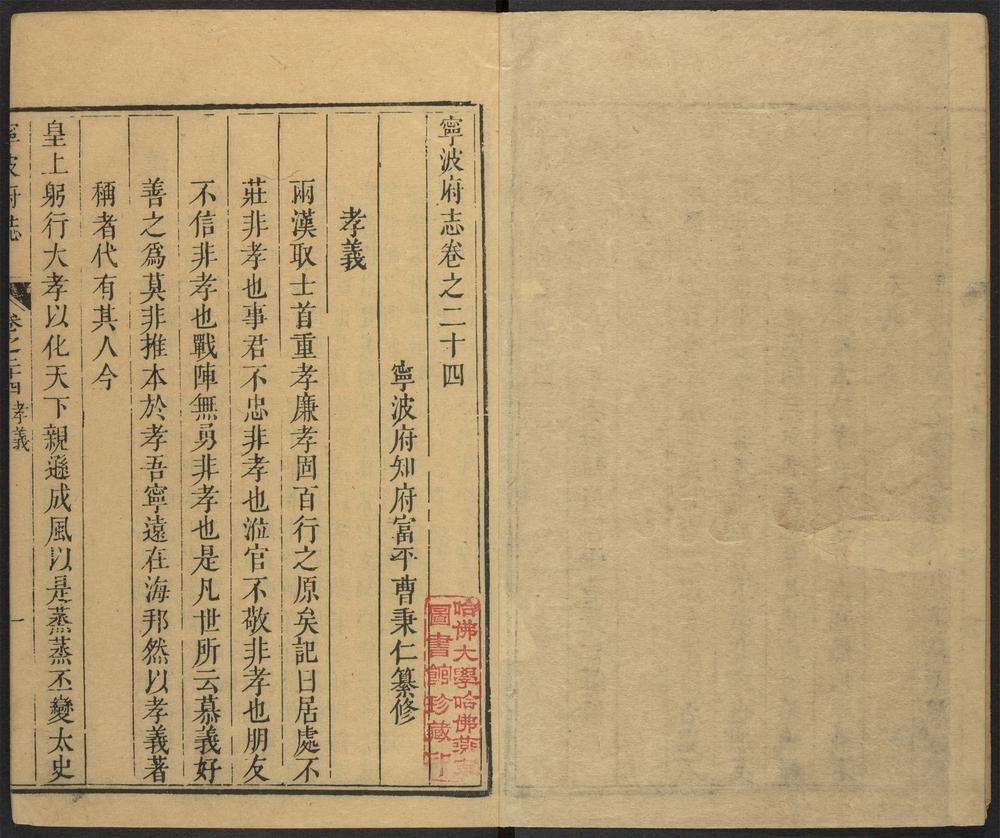 寧波府志卷之二十四
寧波府知府富平曹秉仁纂修
孝義
兩漢取士首重孝廉孝固百行之原矣記曰居處不
莊非孝也事君不忠非孝也涖官不敬非孝也朋友
不信非孝也戰陣無勇非孝也是凡世所云慕義好
善之為莫非推本於孝吾寧遠在海邦然以孝義著
稱者代有其人今
皇上躬行大孝以化天下親遜成風以是蒸蒸丕變太史
寧波府志 卷之二十四 孝義 一
哈佛大學哈佛燕京
圖書館珍藏印